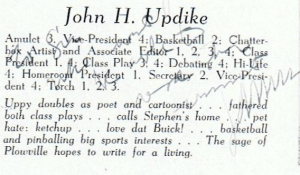 John H. Updike
Amulet 3, Vice-President 4; Basketball 2; Chatter-
box Artist and Associate Editor 1, 2, 3, 4; Class
President 1, 4; Class Play 3, 4; Debating 4; Hi-Life
4; Homeroom President 1, Secretary 2, Vice-Presi-
dent 4; Torch 1, 2, 3.
Uppy doubles as poet and cartoonist . . . fathered
both class plays . . . calls Stephen's home . . . pet
hate: ketchup . . . love dat Buick! . . . basketball
and pinballing big sports interests . . . The sage of
Plowville hopes to write for a living.